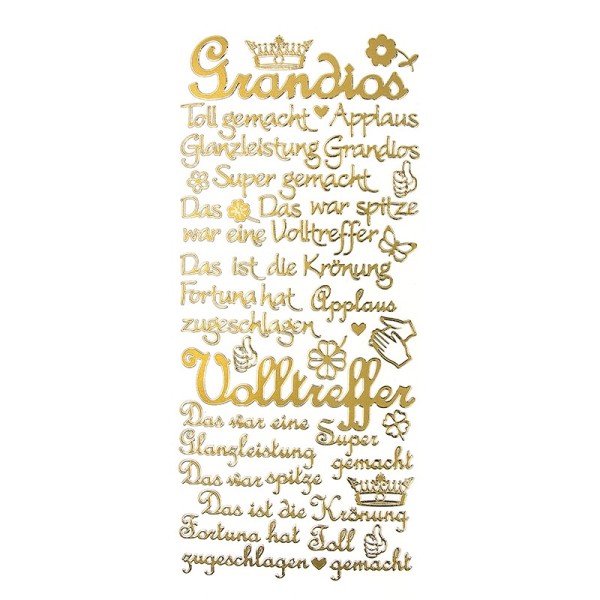 Grandios
Toll gemacht Applaus
Glanzleistung Grandios
Super gemacht
Das Das war spitze
war eine Volltreffer
Das ist die Krönung
Fortuna hat Applaus
zugeschlagen
Volltreffer
Das war eine Super
Glanzleistung gemacht
Das war spitze
Das ist die Krönung
Fortuna hat Toll
zugeschlagen gemacht